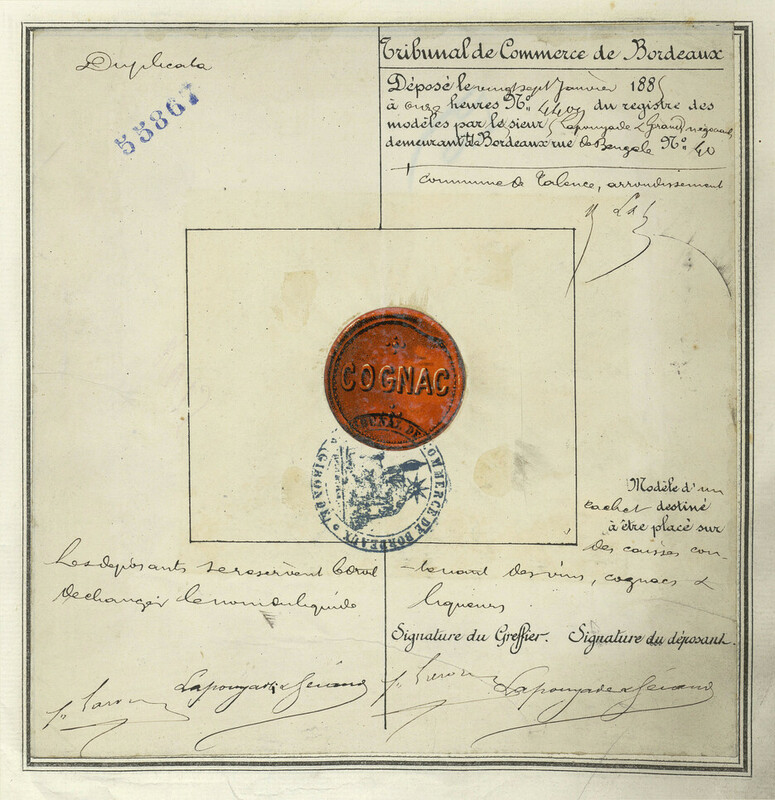 Duplicata
55867
Tribunal de Commerce de Bordeaux
Déposé le vingt sept Janvier 188
à onze heures No. 4409 du registre des
modèles par le sieur Lapouyade & Gérand négociants
demeurant à Bordeaux rue de Bengale No. 40
commune de Talence, arrondissement
COGNAC
TRIBUNAL DE COMMERCE DE BORDEAUX
(GIRONDE)
Modèle d'un
cachet destiné
à être placé sur
des caisses con-
-tenant des vins, cognacs &
liqueurs.
Les déposants se reservent le droit
de changer le nom du liquide
Signature du Greffier. Signature du déposant.
Lapouyade & Gérand
Lapouyade & Gérand